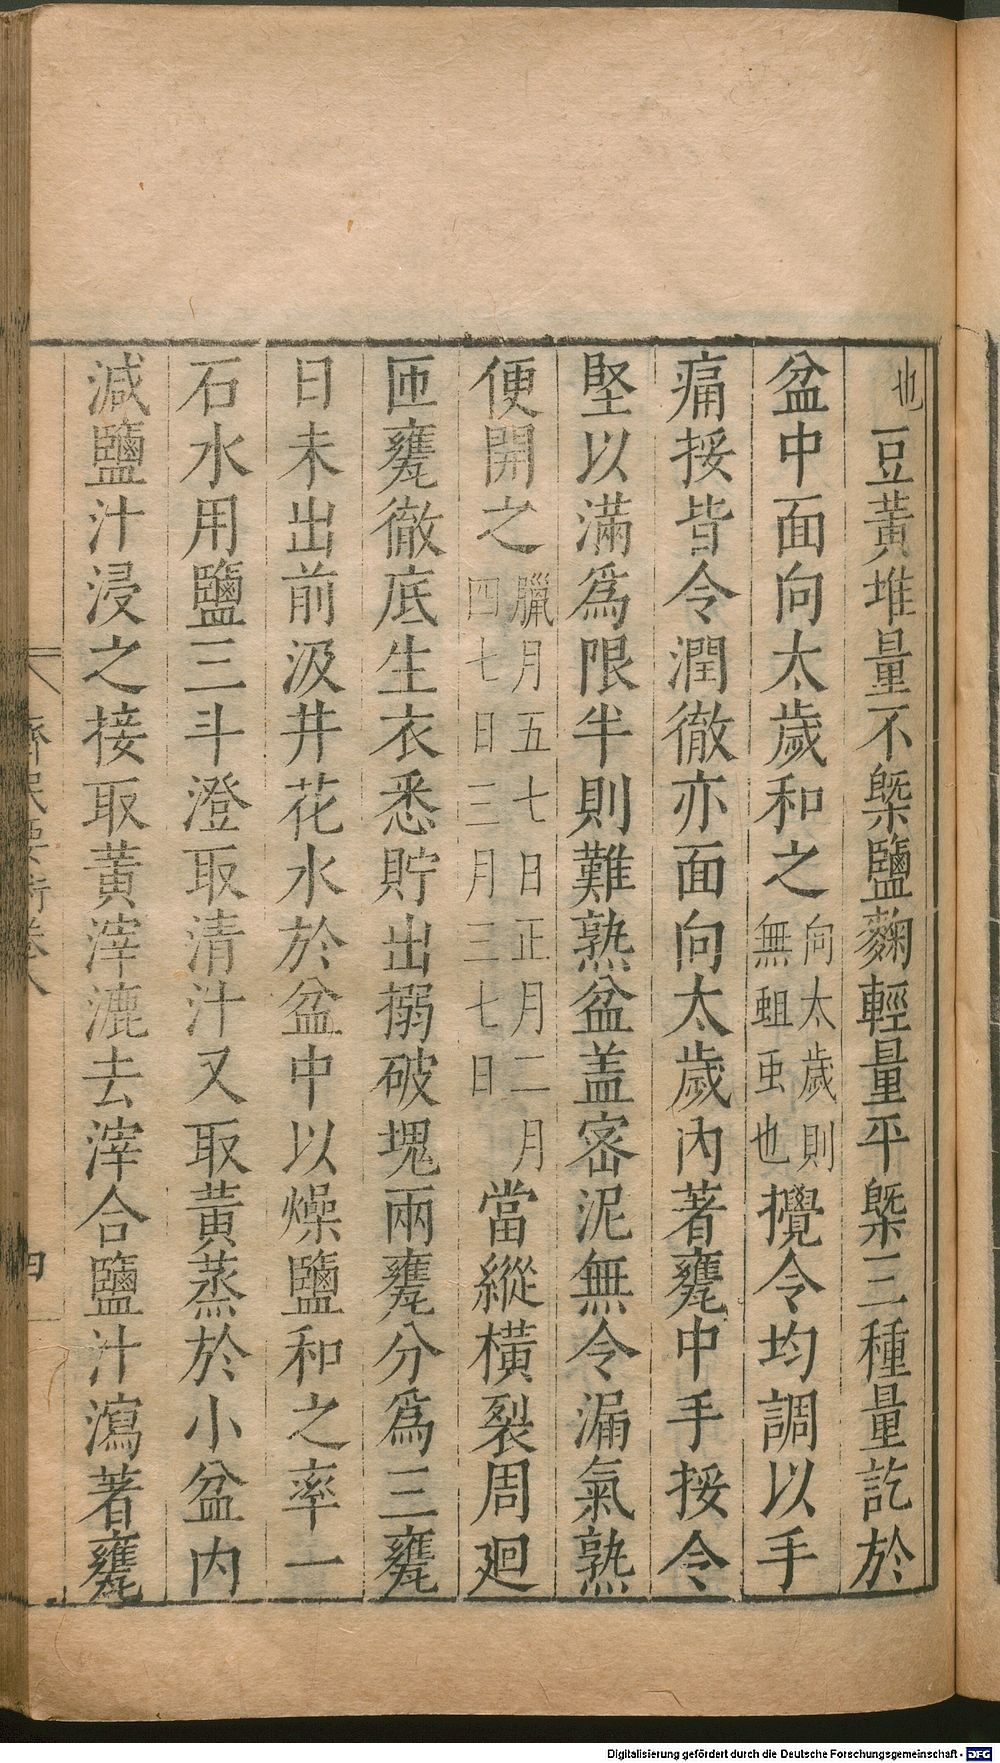 也豆黃堆量不槩鹽麴輕量平槩三種量訖於
盆中面向太歲和之向太歲則無蛆䖝也攪令均調以手
痛挼皆令潤徹亦面向太歲內著甕中手挼令
堅以滿爲限半則難熟盆盖密泥無令漏氣熟
便開之臘月五七日正月二月四七日三月三七日當縱橫裂周廻
匝甕徹底生衣悉貯出搦破塊兩甕分爲三甕
日未出前汲井花水於盆中以燥鹽和之率一
石水用鹽三斗澄取清汁又取黃蒸於小盆内
減鹽汁浸之接取黃滓漉去滓合鹽汁瀉著甕
齊民要術卷八
四
Digitalisierung gefördert durch die Deutsche Forschungsgemeinschaft - DFG